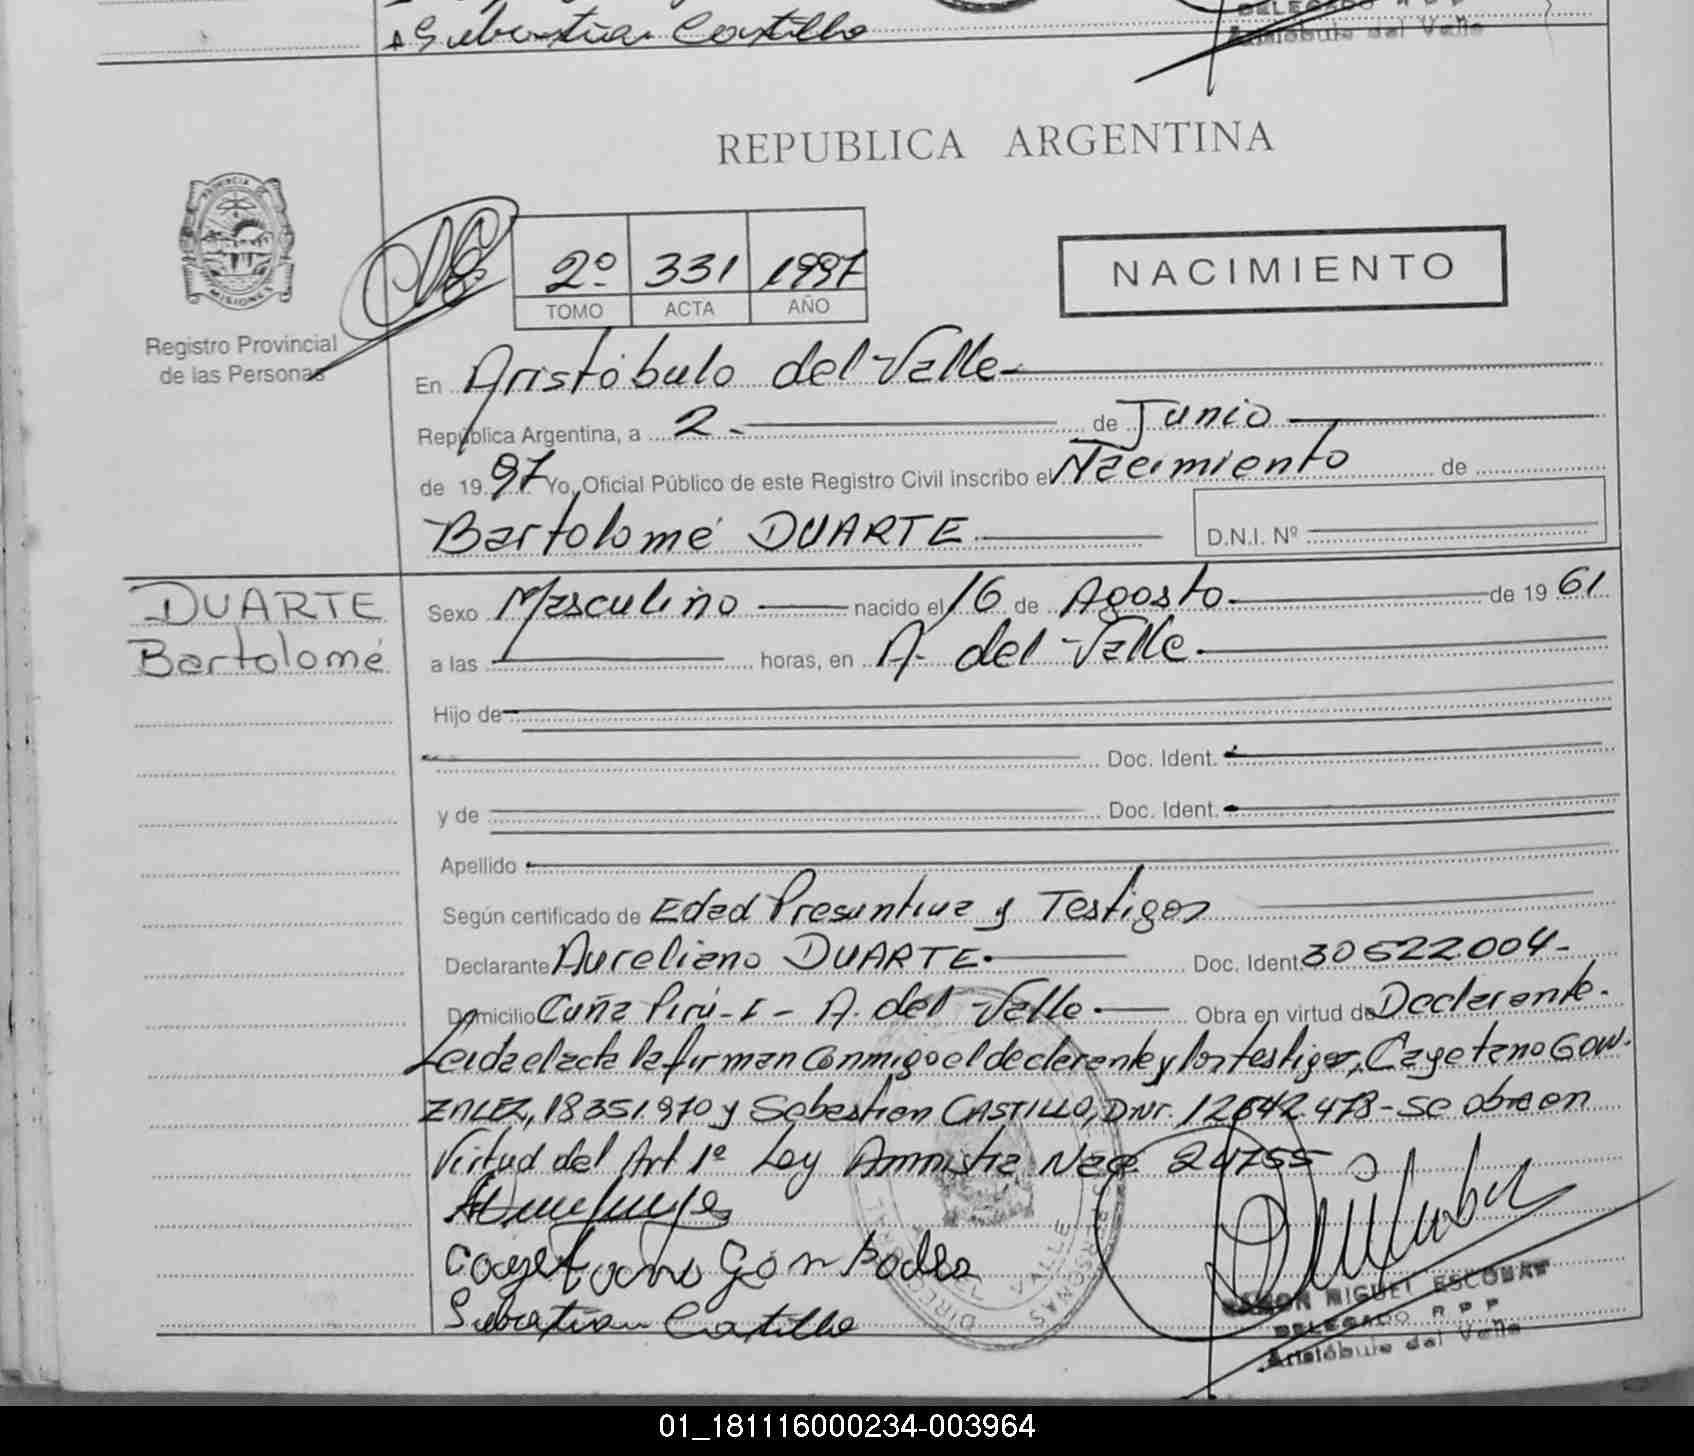 Sebastian Castillo
DELEGADO R P P
Aristóbulo del Valle
REPUBLICA ARGENTINA
PROVINCIA DE
MISIONES
Registro Provincial
de las Personas
2º 331 1997
TOMO ACTA AÑO
NACIMIENTO
En Aristóbulo del Valle
República Argentina, a 2 de Junio
de 1997 Yo, Oficial Público de este Registro Civil inscribo el Nacimiento de
Bartolomé DUARTE D.N.I. Nº
DUARTE
Bartolomé
Sexo Masculino nacido el 16 de Agosto de 1961
a las horas, en A. del Valle
Hijo de
Doc. Ident.
y de Doc. Ident.
Apellido
Según certificado de Edad Presuntiva y Testigos
Declarante Aureliano DUARTE Doc. Ident. 30522004-
Domicilio Cuña Pirú-I- A. del Valle Obra en virtud de Declarante.
Leida el acta la firman conmigo el declarante y los testigos, Cayetano GON-
ZALEZ, 18351.970 y Sebastian CASTILLO, DNI. 12642.478- se obra en
Virtud del Art 1º Ley Amnistia Nac. 24755
Cayetano
Sebastian Castillo
RAMON MIGUEL ESCOBAR
DELEGADO R P P
Aristóbulo del Valle
01_181116000234-003964